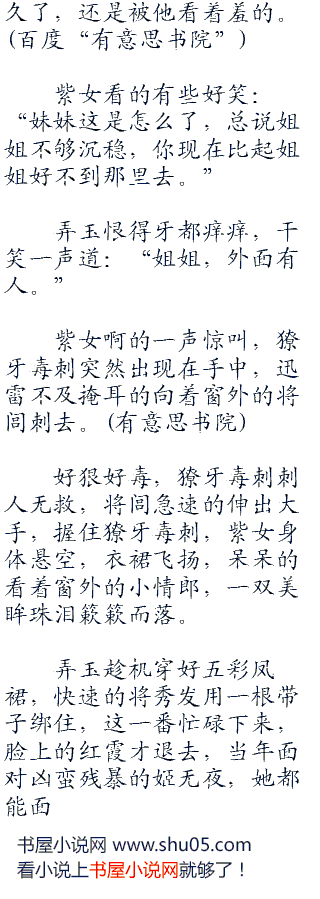 久了，还是被他看着羞的。
(百度“有意思书院”)
紫女看的有些好笑：
“妹妹这是怎么了，总说姐
姐不够沉稳，你现在比起姐
姐好不到那里去。”
弄玉恨得牙都痒痒，干
笑一声道：“姐姐，外面有
人。”
紫女啊的一声惊叫，獠
牙毒刺突然出现在手中，迅
雷不及掩耳的向着窗外的将
闾刺去。(有意思书院)
好狠好毒，獠牙毒刺刺
人无救，将闾急速的伸出大
手，握住獠牙毒刺，紫女身
体悬空，衣裙飞扬，呆呆的
看着窗外的小情郎，一双美
眸珠泪簌簌而落。
弄玉趁机穿好五彩凤
裙，快速的将秀发用一根带
子绑住，这一番忙碌下来，
脸上的红霞才退去，当年面
对凶蛮残暴的姬无夜，她都
能面
书屋小说网 www.shu05.com
看小说上书屋小说网就够了！